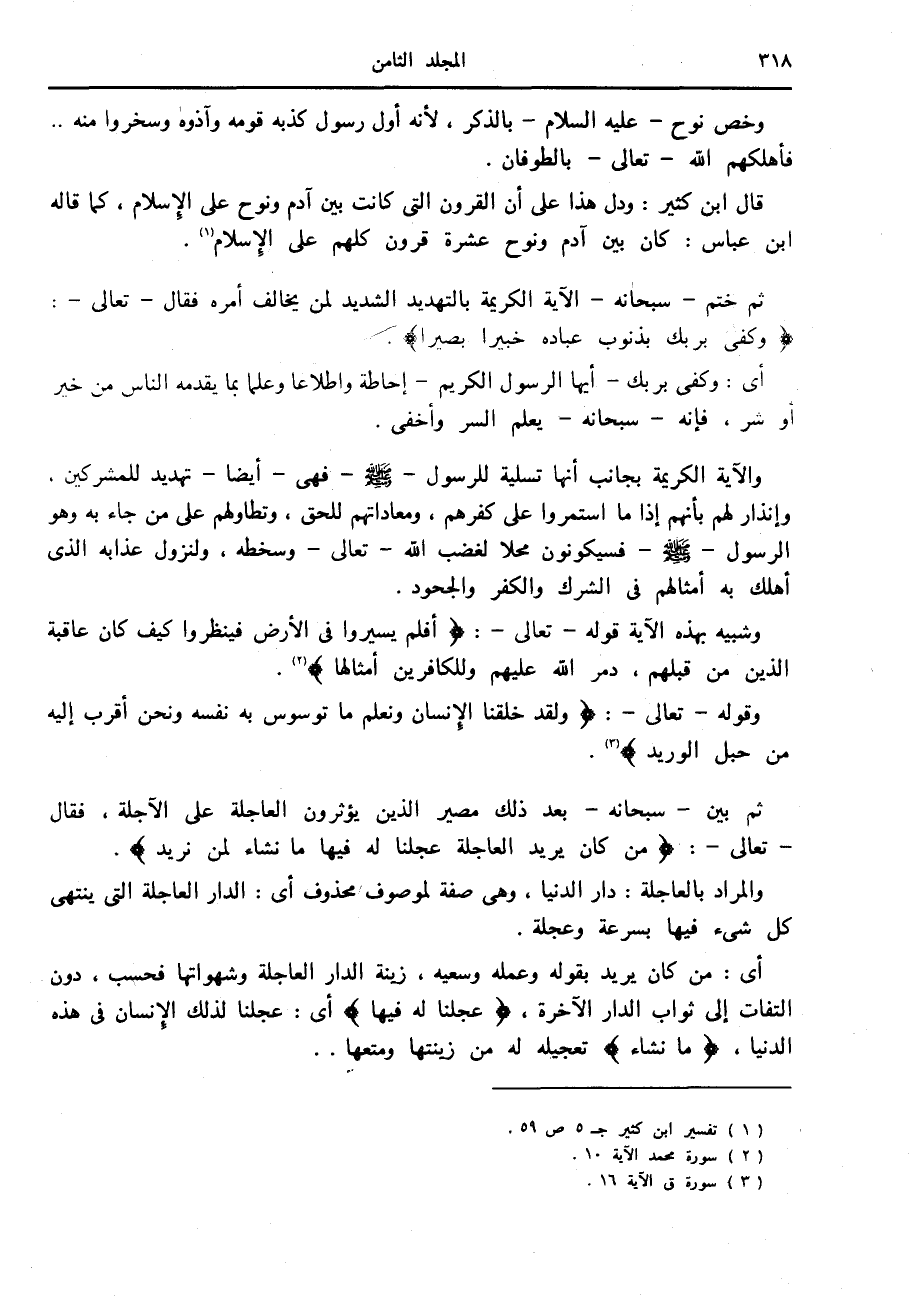 ٣١٨ المجلد الثامن
وخص نوح – عليه السلام – بالذكر ، لأنه أول رسول كذبه قومه وآذوه وسخروا منه ..
فأهلكهم الله – تعالى – بالطوفان .
قال ابن كثير : ودل هذا على أن القرون التى كانت بين آدم ونوح على الإسلام ، كما قاله
ابن عباس : كان بين آدم ونوح عشرة قرون كلهم على الإسلام(١) .
ثم ختم – سبحانه – الآية الكريمة بالتهديد الشديد لمن يخالف أمره فقال – تعالى – :
﴿ وكفى بربك بذنوب عباده خبيرا بصيرا﴾ .
أى : وكفى بربك – أيها الرسول الكريم – إحاطة واطلاعا وعلما بما يقدمه الناس من خير
أو شر ، فإنه – سبحانه – يعلم السر وأخفى .
والآية الكريمة بجانب أنها تسلية للرسول – ﷺ – فهى – أيضا – تهديد للمشركين ،
وإنذار لهم بأنهم إذا ما استمروا على كفرهم ، ومعاداتهم للحق ، وتطاولهم على من جاء به وهو
الرسول – ﷺ – فسيكونون محلا لغضب الله – تعالى – وسخطه ، ولنزول عذابه الذى
أهلك به أمثالهم فى الشرك والكفر والجحود .
وشبيه بهذه الآية قوله – تعالى – : ﴿ أفلم يسيروا فى الأرض فينظروا كيف كان عاقبة
الذين من قبلهم ، دمر الله عليهم وللكافرين أمثالها ﴾(٢) .
وقوله – تعالى – : ﴿ ولقد خلقنا الإنسان ونعلم ما توسوس به نفسه ونحن أقرب إليه
من حبل الوريد ﴾(٣) .
ثم بين – سبحانه – بعد ذلك مصير الذين يؤثرون العاجلة على الآجلة ، فقال
– تعالى – : ﴿ من كان يريد العاجلة عجلنا له فيها ما نشاء لمن نريد ﴾ .
والمراد بالعاجلة : دار الدنيا ، وهى صفة لموصوف محذوف أى : الدار العاجلة التى ينتهى
كل شىء فيها بسرعة وعجلة .
أى : من كان يريد بقوله وعمله وسعيه ، زينة الدار العاجلة وشهواتها فحسب ، دون
التفات إلى ثواب الدار الآخرة ، ﴿ عجلنا له فيها ﴾ أى : عجلنا لذلك الإنسان فى هذه
الدنيا ، ﴿ ما نشاء ﴾ تعجيله له من زينتها ومتعها . .
( ١ ) تفسير ابن كثير جـ ٥ ص ٥٩ .
( ٢ ) سورة محمد الآية ١٠ .
( ٣ ) سورة ق الآية ١٦ .